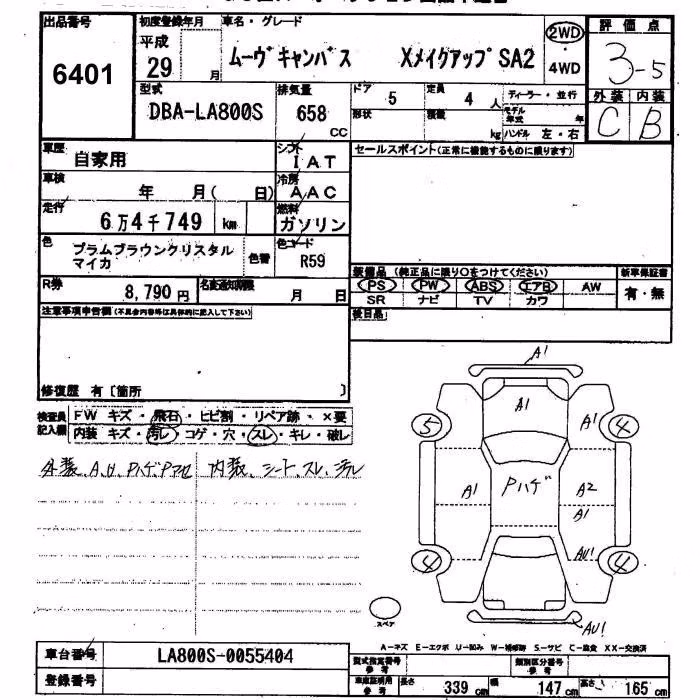 出品番号 初度登録年月 車名・グレード 評価点
6401 平成 29 月 ムーヴキャンバス XメイクアップSA2 2WD 4WD 3-5
型式 排気量 ドア 定員 ディーラー・並行 外装 内装
DBA-LA800S 658 CC 5 4 人 C B
形状 積載 kg モデル年式 年 ハンドル 左・右
車歴 自家用 シフト IAT セールスポイント(正常に機能するものに限ります)
車検 年 月( 日) 冷房 AAC
走行 6万4千749 km 燃料 ガソリン
色 プラムブラウンクリスタル 色替 色コード R59
マイカ
装備品 (純正品に限り○をつけてください) 新車保証書
R券 8,790円 名変通知期限 月 日
PS PW ABS エアB AW 有・無
SR ナビ TV カワ
注意事項申告欄(不具合内容等は具体的に記入して下さい) 後日品
修復歴 有〔箇所 〕
検査員記入欄 FW キズ・飛石・ヒビ割・リペア跡・×要
内装 キズ・汚レ・コゲ・穴・スレ・キレ・破レ
外装、A,U,Pハゲ 内装、シート、スレ、汚レ
A1
A1 A1
5 4
A1 Pハゲ A2
A1
AU1
4 4
スペア AU1
A-キズ E-エクボ U-凹み W-補修跡 S-サビ C-腐食 XX-交換済
車台番号 LA800S-0055404 型式指定番号 参考 類別区分番号 参考
登録番号 車庫証明用 参考 長さ 339 cm 幅 147 cm 高さ 165 cm